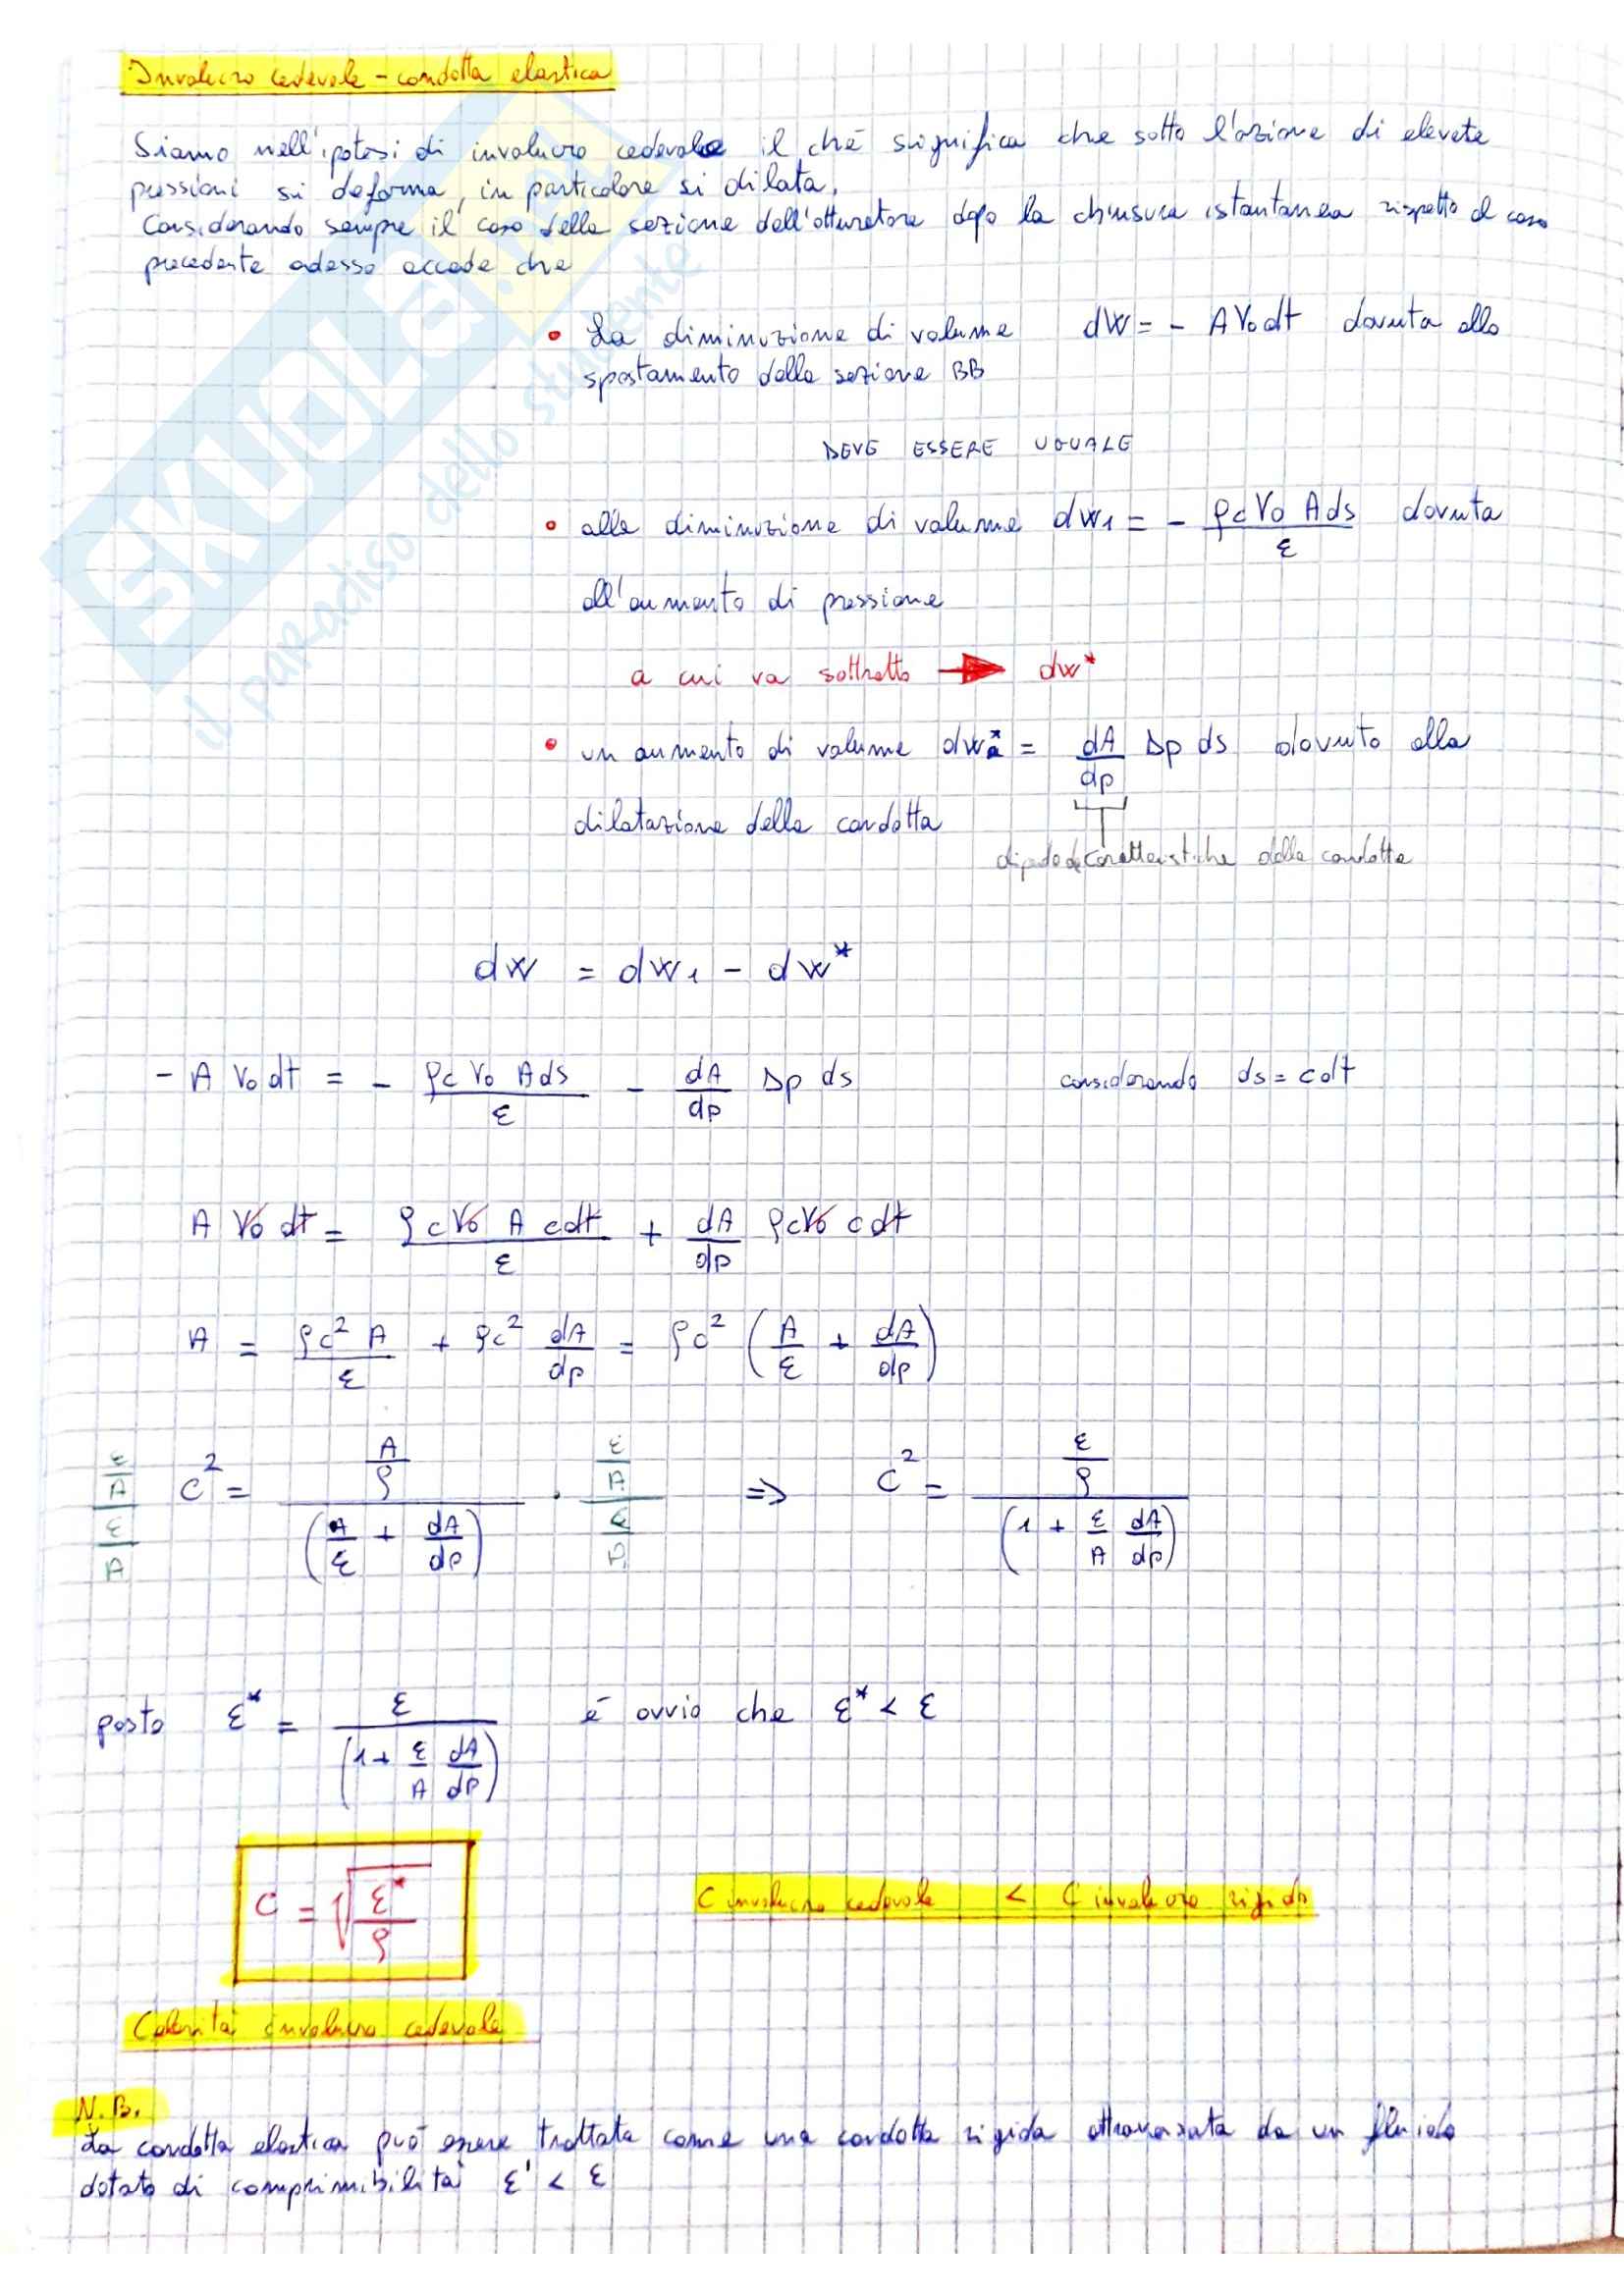 Involucro cedevole - condotta elastica
Siamo nell'ipotesi di involucro cedevole il che significa che sotto l'azione di elevate
pressioni si deforma, in particolare si dilata.
Considerando sempre il caso della sezione dell'otturatore dopo la chiusura istantanea rispetto al caso
precedente adesso accade che
• La diminuzione di volume dW = - A V0 dt dovuta allo
spostamento della sezione BB
DEVE ESSERE UGUALE
• alla diminuzione di volume dW1 = - ρcV0 A ds / ε dovuta
all'aumento di pressione
a cui va sottratto → dW*
• un aumento di volume dW* = dA/dp Δp ds dovuto alla
dilatazione della condotta
dipende da caratteristiche della condotta
dW = dW1 - dW*
- A V0 dt = - ρc V0 A ds / ε - dA/dp Δp ds considerando ds = c dt
A V0 dt = ρ c V0 A c dt / ε + dA/dp ρcV0 c dt
A = ρc² A / ε + ρc² dA/dp = ρc² (A/ε + dA/dp)
ε/A / ε/A c² = A/ρ / (A/ε + dA/dp) · ε/A / ε/A ⇒ c² = ε/ρ / (1 + ε/A dA/dp)
posto ε* = ε / (1 + ε/A dA/dp) è ovvio che ε* < ε
C = √ε*/ρ
C involucro cedevole < C involucro rigido
Celerità involucro cedevole
N.B.
La condotta elastica può essere trattata come una condotta rigida attraversata da un fluido
dotato di comprimibilità ε' < ε
SKUOLA.net
il paradiso dello studente